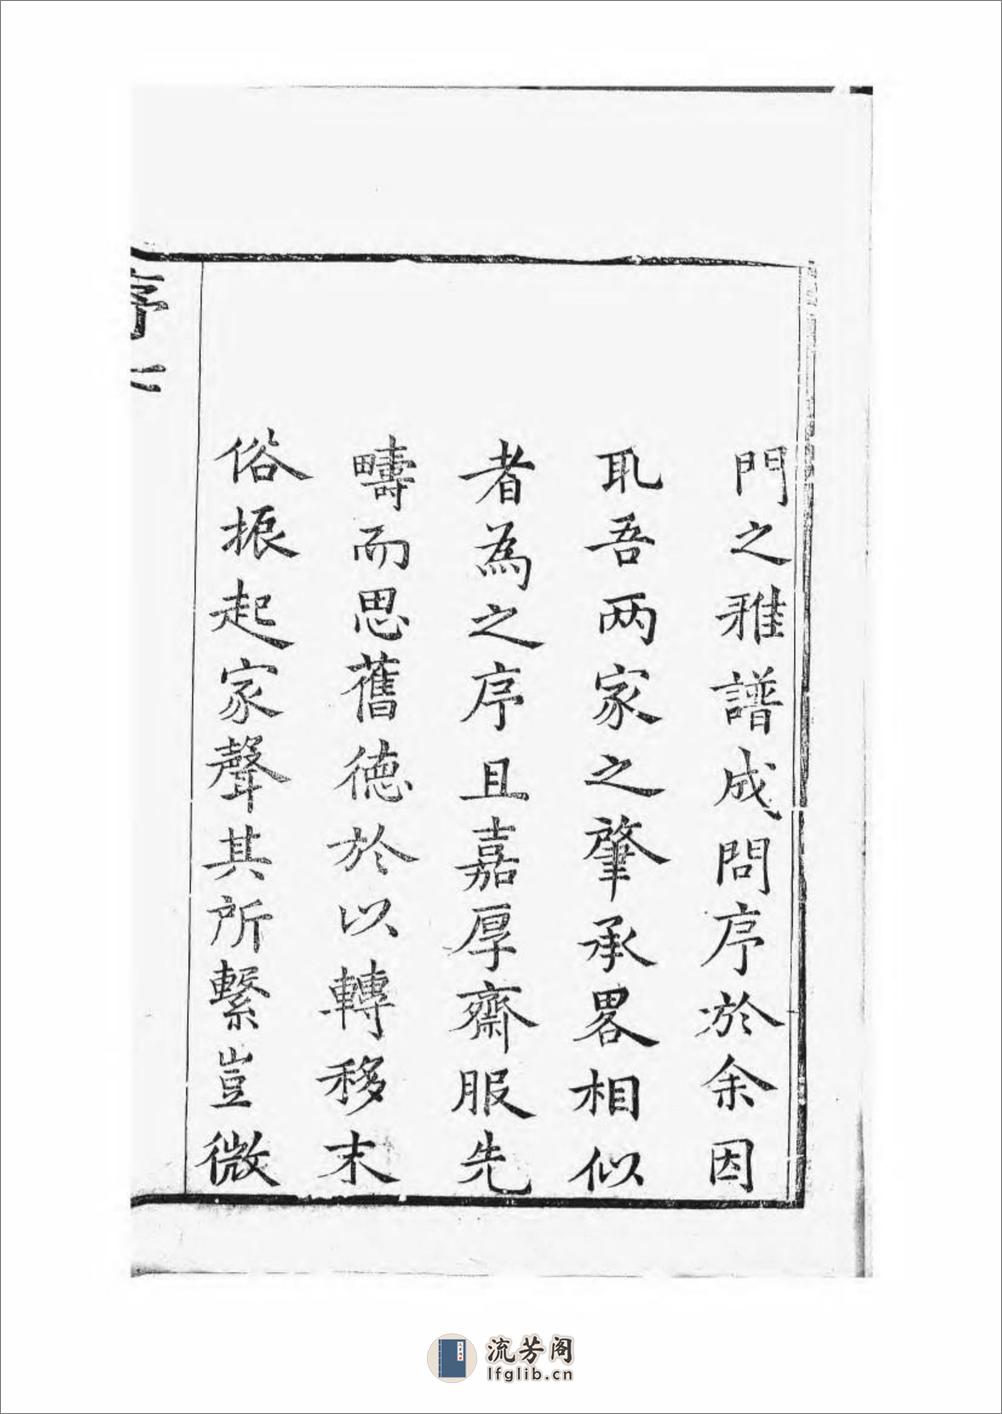 門之雅譜成問序於余因
耴吾两家之肇承畧相似
者為之序且嘉厚齋服先
疇而思舊德於以轉移末
俗振起家聲其所繫豈微
序
流芳阁
lfglib.cn